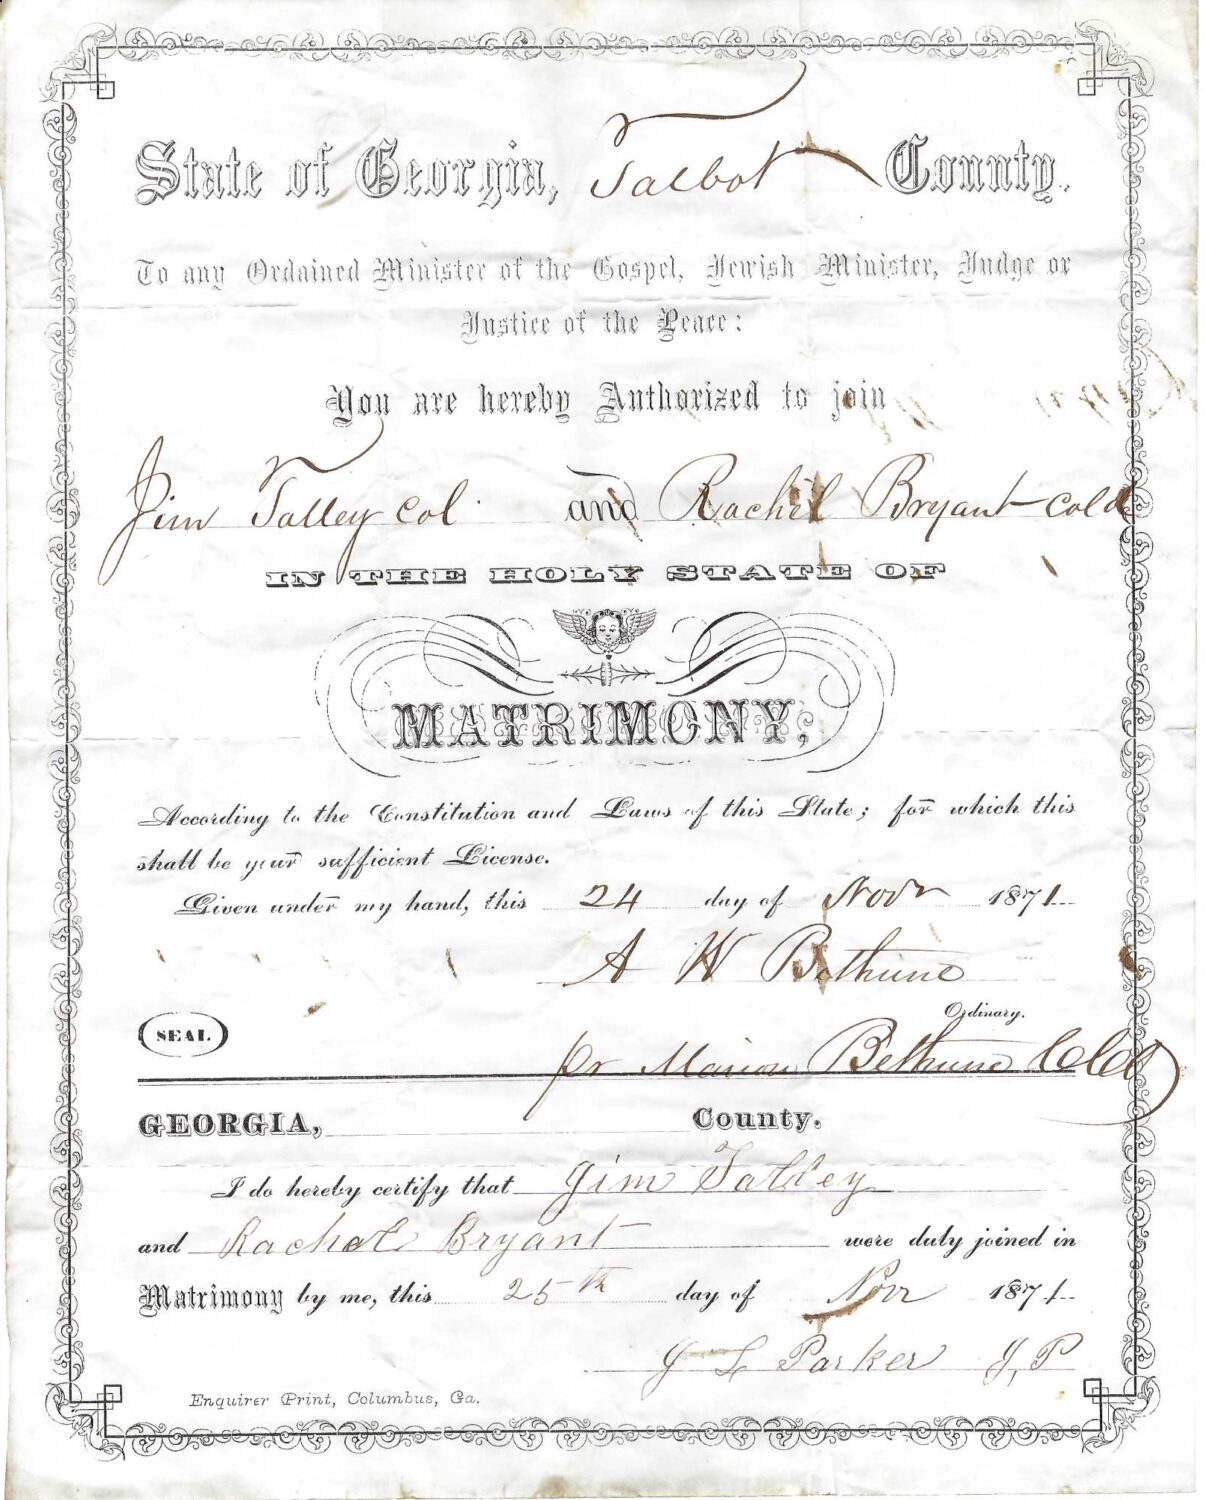 State of Georgia, Talbot County.
To any Ordained Minister of the Gospel, Jewish Minister, Judge or
Justice of the Peace:
You are hereby Authorized to join
Jim Talley Col. and Rachel Bryant Cold
IN THE HOLY STATE OF
MATRIMONY;
According to the Constitution and Laws of this State; for which this
shall be your sufficient License.
Given under my hand, this 24 day of Novr 1871.
A W Bethune
Ordinary.
SEAL
pr Marion Bethune
GEORGIA, County.
I do hereby certify that Jim Talley
and Rachel Bryant were duly joined in
Matrimony by me, this 25th day of Novr 1871.
J L Parker J,P
Enquirer Print, Columbus, Ga.